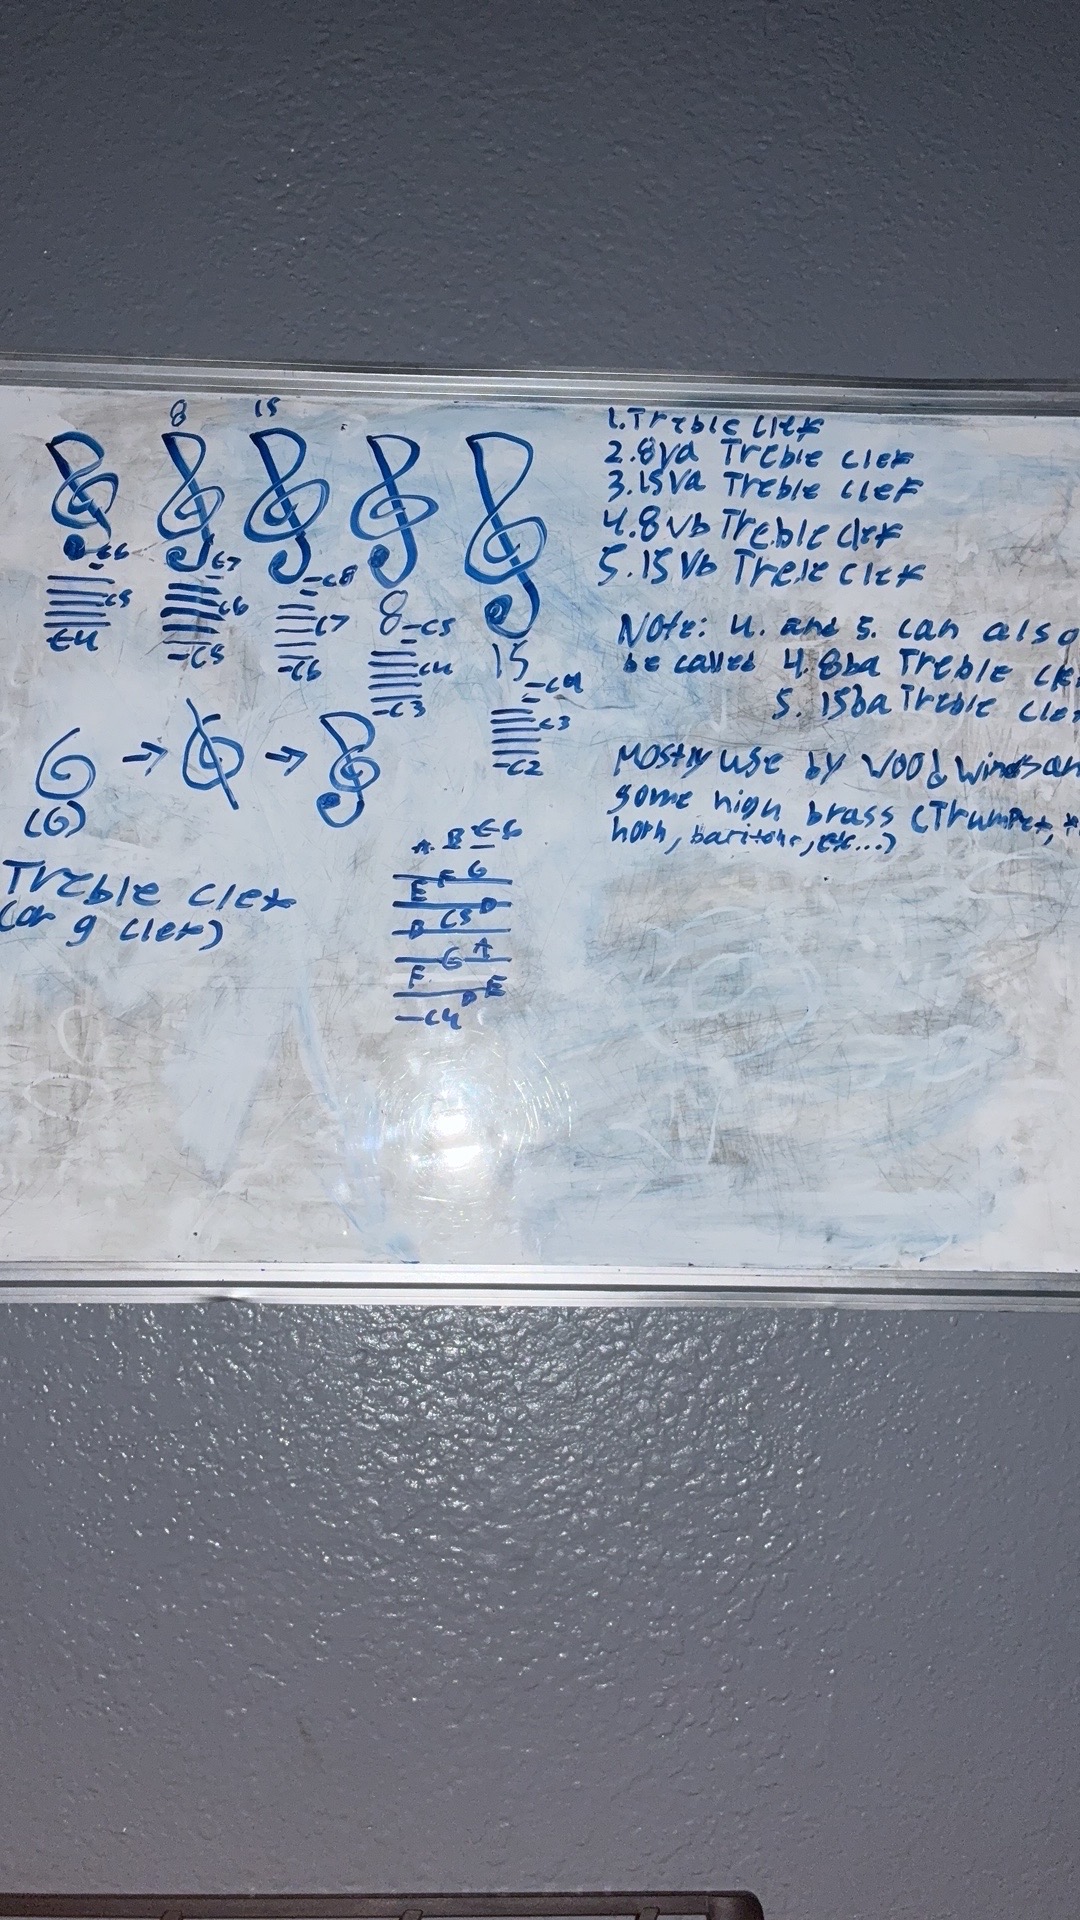 8
15
C6
C5
C4
C7
C6
C5
C8
C7
C6
8
C5
C4
C3
15
C4
C3
C2
G
(G)
Treble clef
(or g clef)
A B C6
E F G
B C5 D
F G A
C4 D E
1. Treble clef
2. 8va Treble clef
3. 15va Treble clef
4. 8vb Treble clef
5. 15vb Treble clef
Note: 4. and 5. can also
be called 4. 8ba Treble cle
5. 15ba Treble clef
Mostly use by Woodwinds an
some high brass (Trumpet,
horn, baritone, etc...)